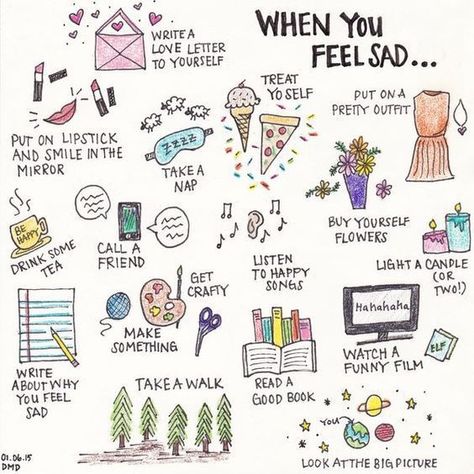 WHEN YOU
FEEL SAD...
WRITE A
LOVE LETTER
TO YOURSELF
TREAT
YO SELF
PUT ON A
PRETTY OUTFIT
PUT ON LIPSTICK
AND SMILE IN THE
MIRROR
ZZZZ
TAKE A
NAP
BUY YOURSELF
FLOWERS
BE
HAPPY
DRINK SOME
TEA
CALL A
FRIEND
LISTEN
TO HAPPY
SONGS
LIGHT A CANDLE
(OR
TWO!)
GET
CRAFTY
MAKE
SOMETHING
Hahahaha
ELF
WATCH A
FUNNY FILM
WRITE
ABOUT WHY
YOU FEEL
SAD
TAKE A WALK
READ A
GOOD BOOK
YOU
LOOK AT THE BIG PICTURE
01.06.15
DMD